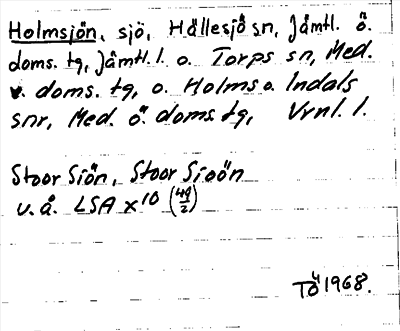 Holmsjön, sjö, Hällesjö sn, Jämtl. ö.
doms. tg, Jämtl. l. o. Torps sn, Med.
v. doms. tg, o. Holms o. Indals
snr, Med. ö. doms. tg, Vrnl. l.
Stoor Siön, Stoor Sioön
u. å. LSA x10 (49/2)
TÖ 4 1968.